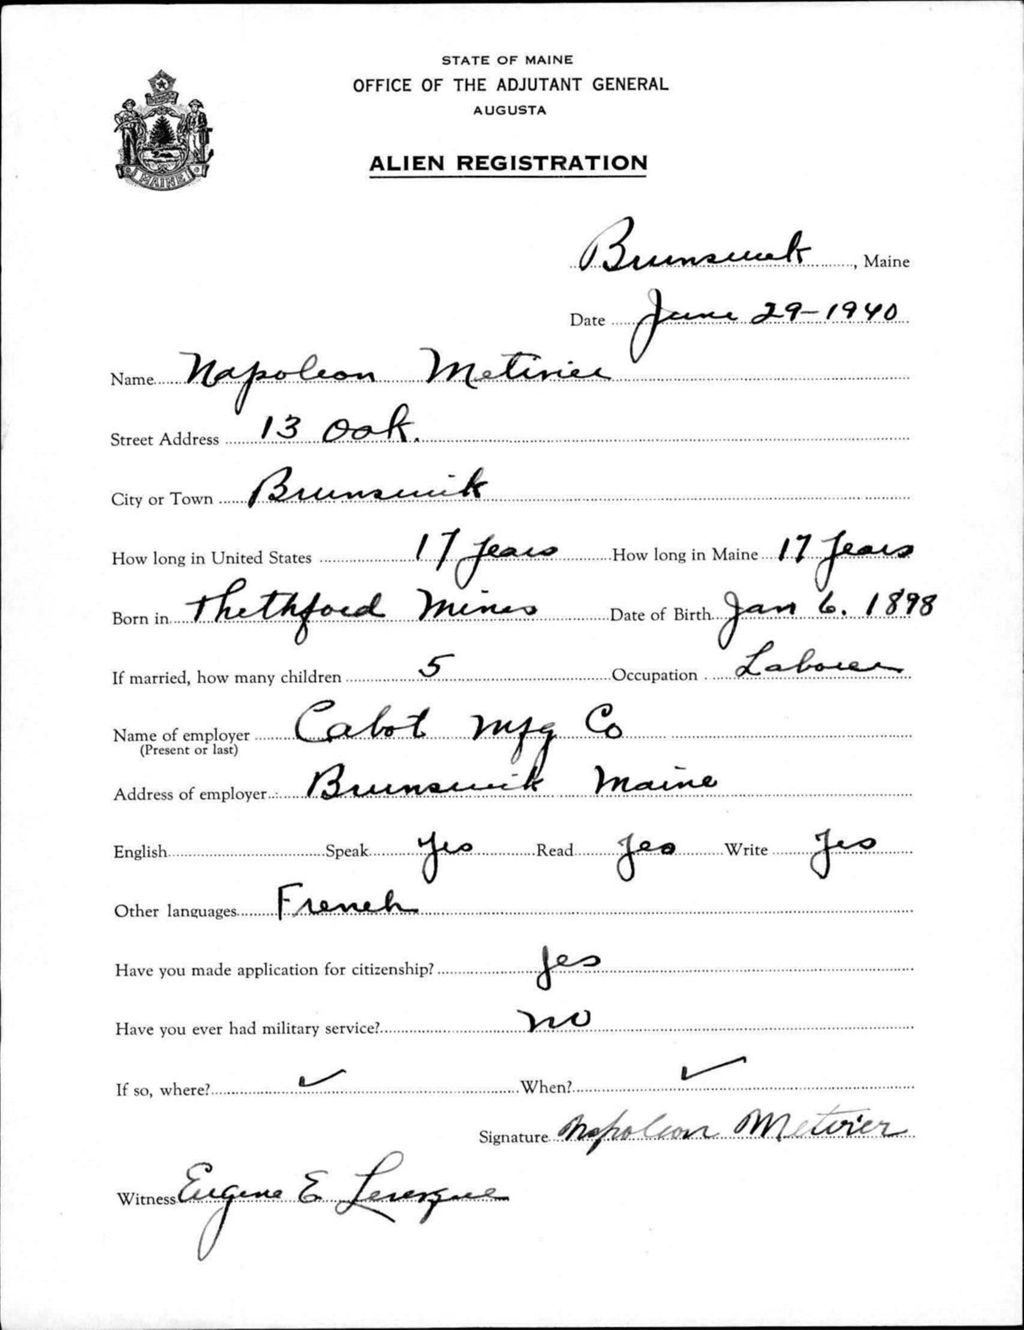 STATE OF MAINE
OFFICE OF THE ADJUTANT GENERAL
AUGUSTA
ALIEN REGISTRATION
MAINE
Brunswick, Maine
Date June 29-1940
Name Napoleon Metivier
Street Address 13 Oak.
City or Town Brunswick
How long in United States 17 years How long in Maine 17 years
Born in Thethford Mines Date of Birth Jan 6. 1898
If married, how many children 5 Occupation Laborer
Name of employer Cabot Mfg Co
(Present or last)
Address of employer Brunswick Maine
English Speak Yes Read Yes Write Yes
Other languages French
Have you made application for citizenship? Yes
Have you ever had military service? no
If so, where? ✓ When? ✓
Signature Napoleon Metivier
Witness Eugene E